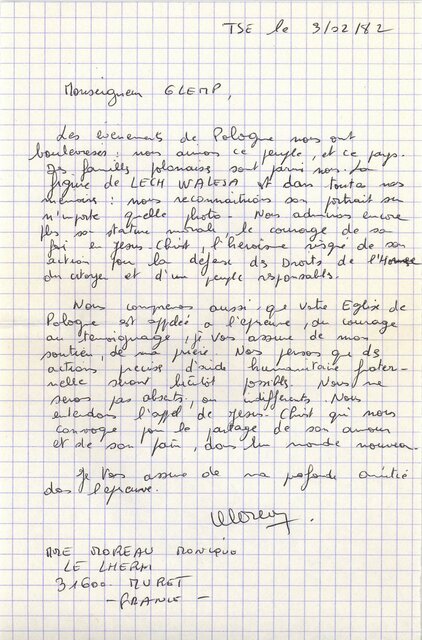 TSE le 3/02/82
Monseigneur GLEMP,
Les évènements de Pologne nous ont
bouleversés : nous aimons ce peuple, et ce pays.
Des familles polonaises sont parmi nous. La
figure de LECH WALESA est dans toutes nos
mémoires : nous reconnaitrions son portrait sur
n'importe quelle photo - Nous admirons encore
plus sa stature morale, le courage de sa
foi en Jésus-Christ, l'héroïsme risqué de son
action pour la défense des Droits de l'Homme
du citoyen et d'un peuple responsable.
Nous comprenons aussi que votre Eglise de
Pologne est appelée à l'épreuve, du courage
au témoignage, je vous assure de mon
soutien, de ma prière. Nous pensons que des
actions précises d'aide humanitaire frater-
nelle seront bientôt possibles. Nous ne
serons pas absents, ou indifférents. Nous
entendons l'appel de Jésus-Christ qui nous
convoque pour le partage de son amour
et de son pain, dans un monde nouveau.
Je vous assure de ma profonde amitié
dans l'épreuve.
MMe MOREAU Monique
LE LHERM
31600 MURET
- FRANCE -